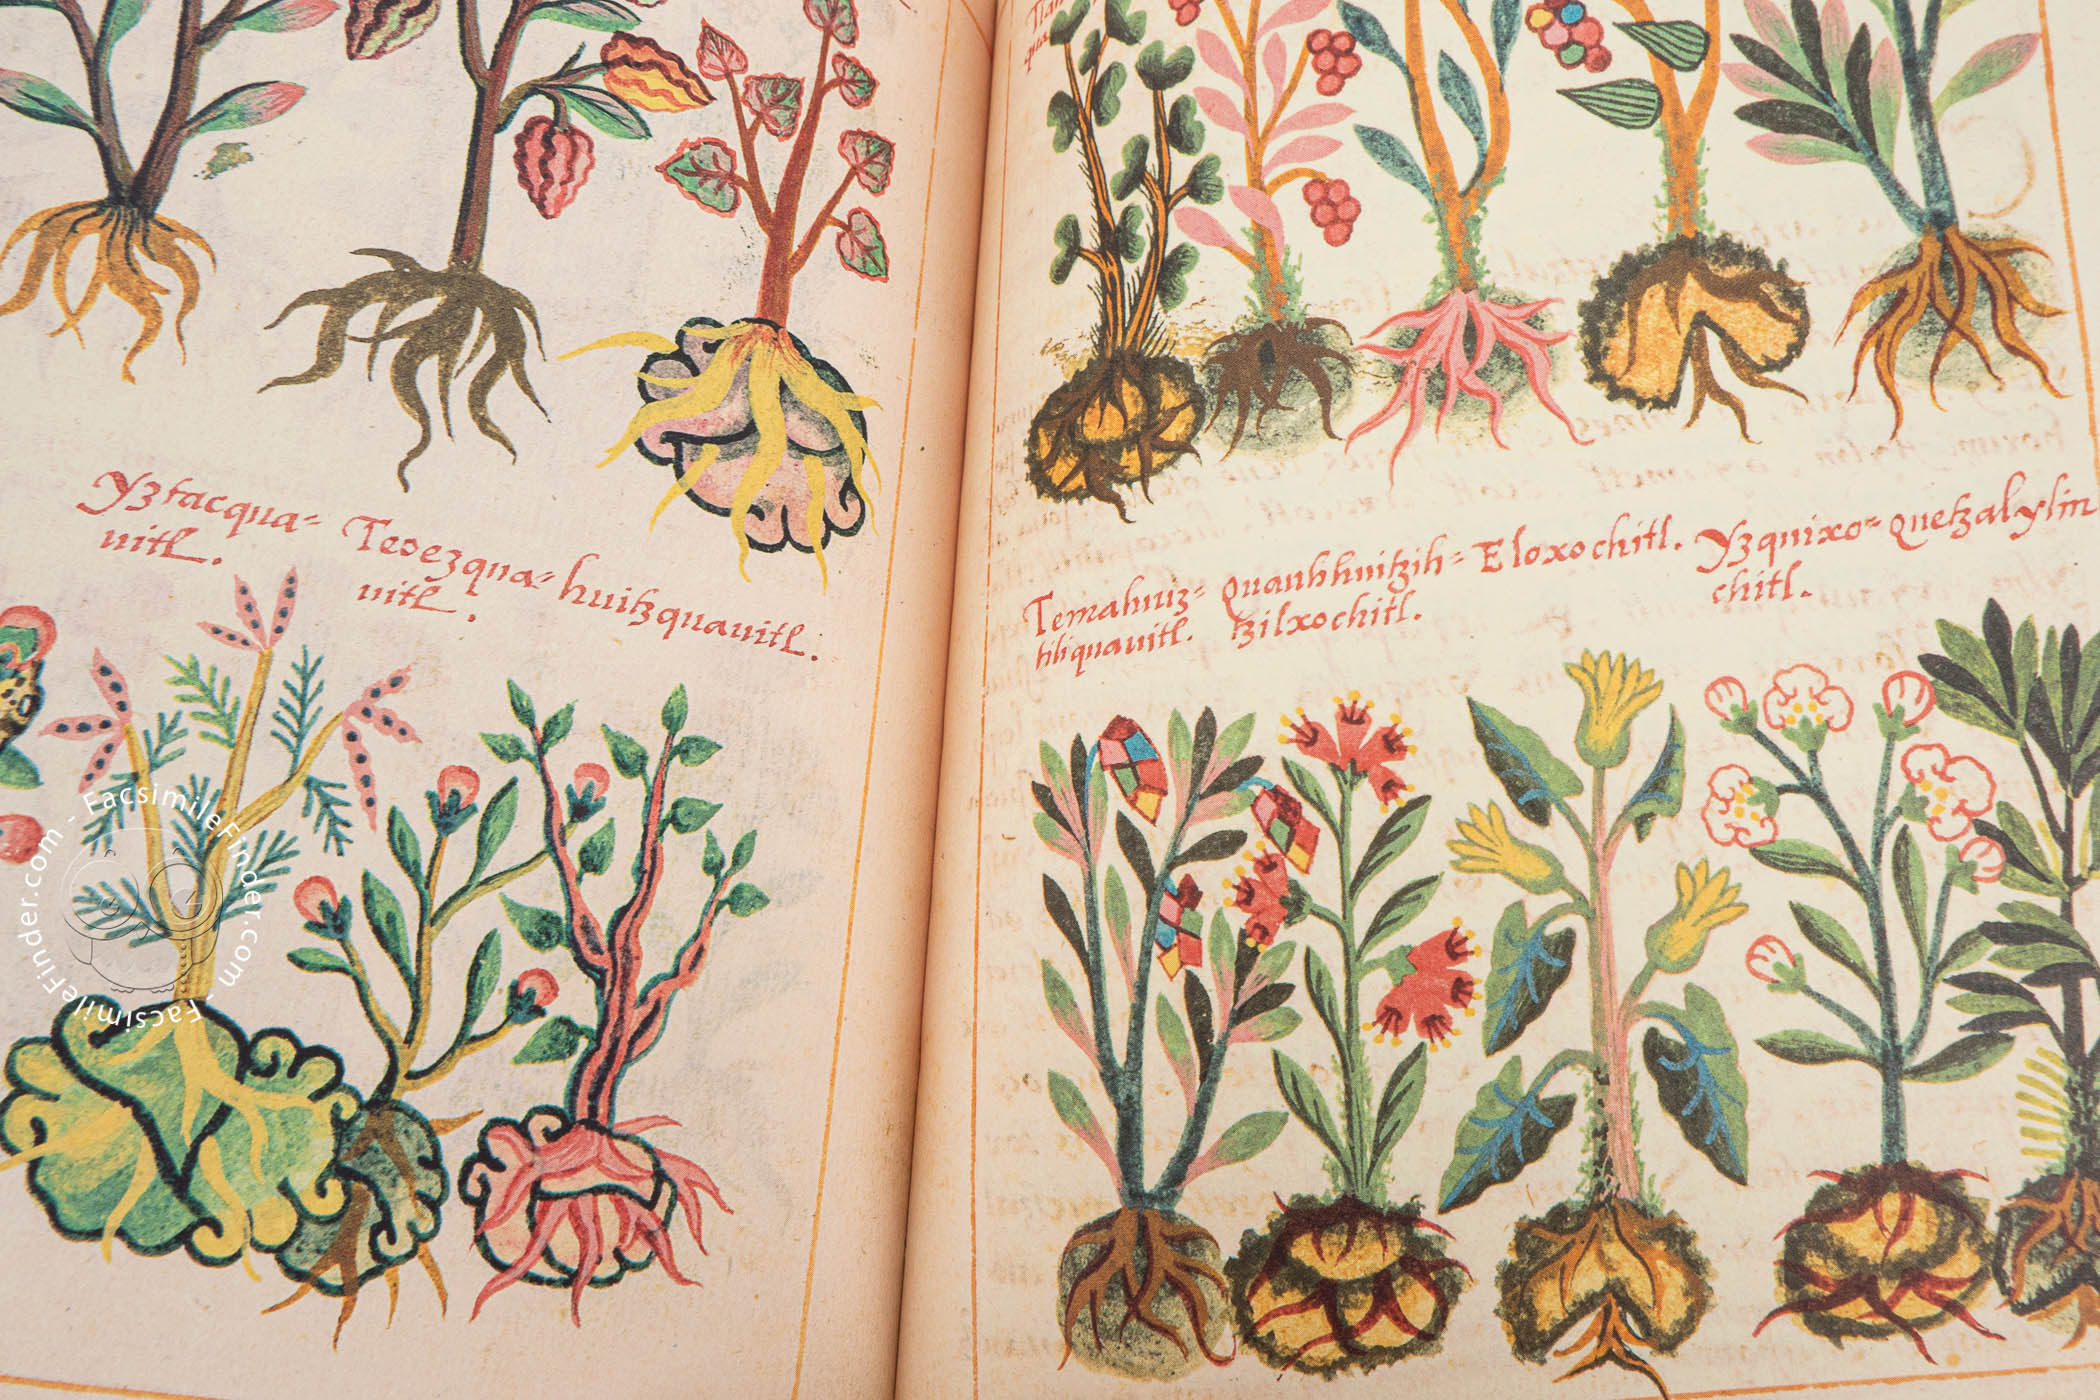 Yztacqua=
uitl.
Teoezqua=
uitl.
huitzquauitl.
Temahuiz=
tiliquauitl.
Quauhhuitzih=
tzilxochitl.
Eloxochitl.
Yzquixo=
chitl.
quetzalylin
FacsimileFinder.com - FacsimileFinder.com -